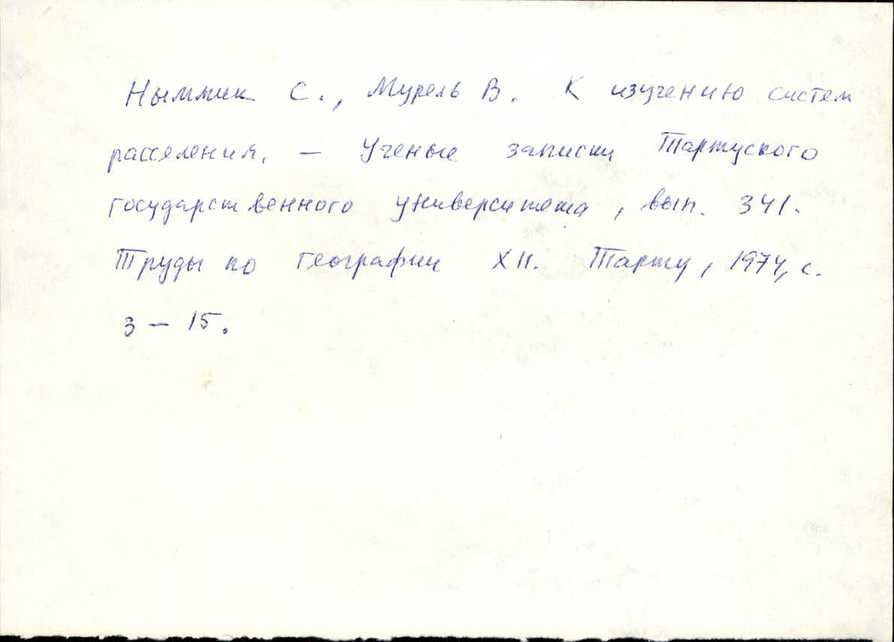 Ныммик С., Мурель В. К изучению систем
расселения. — Ученые записки Тартуского
государственного университета, вып. 341.
Труды по географии XII. Тарту, 1974, с.
3 — 15.